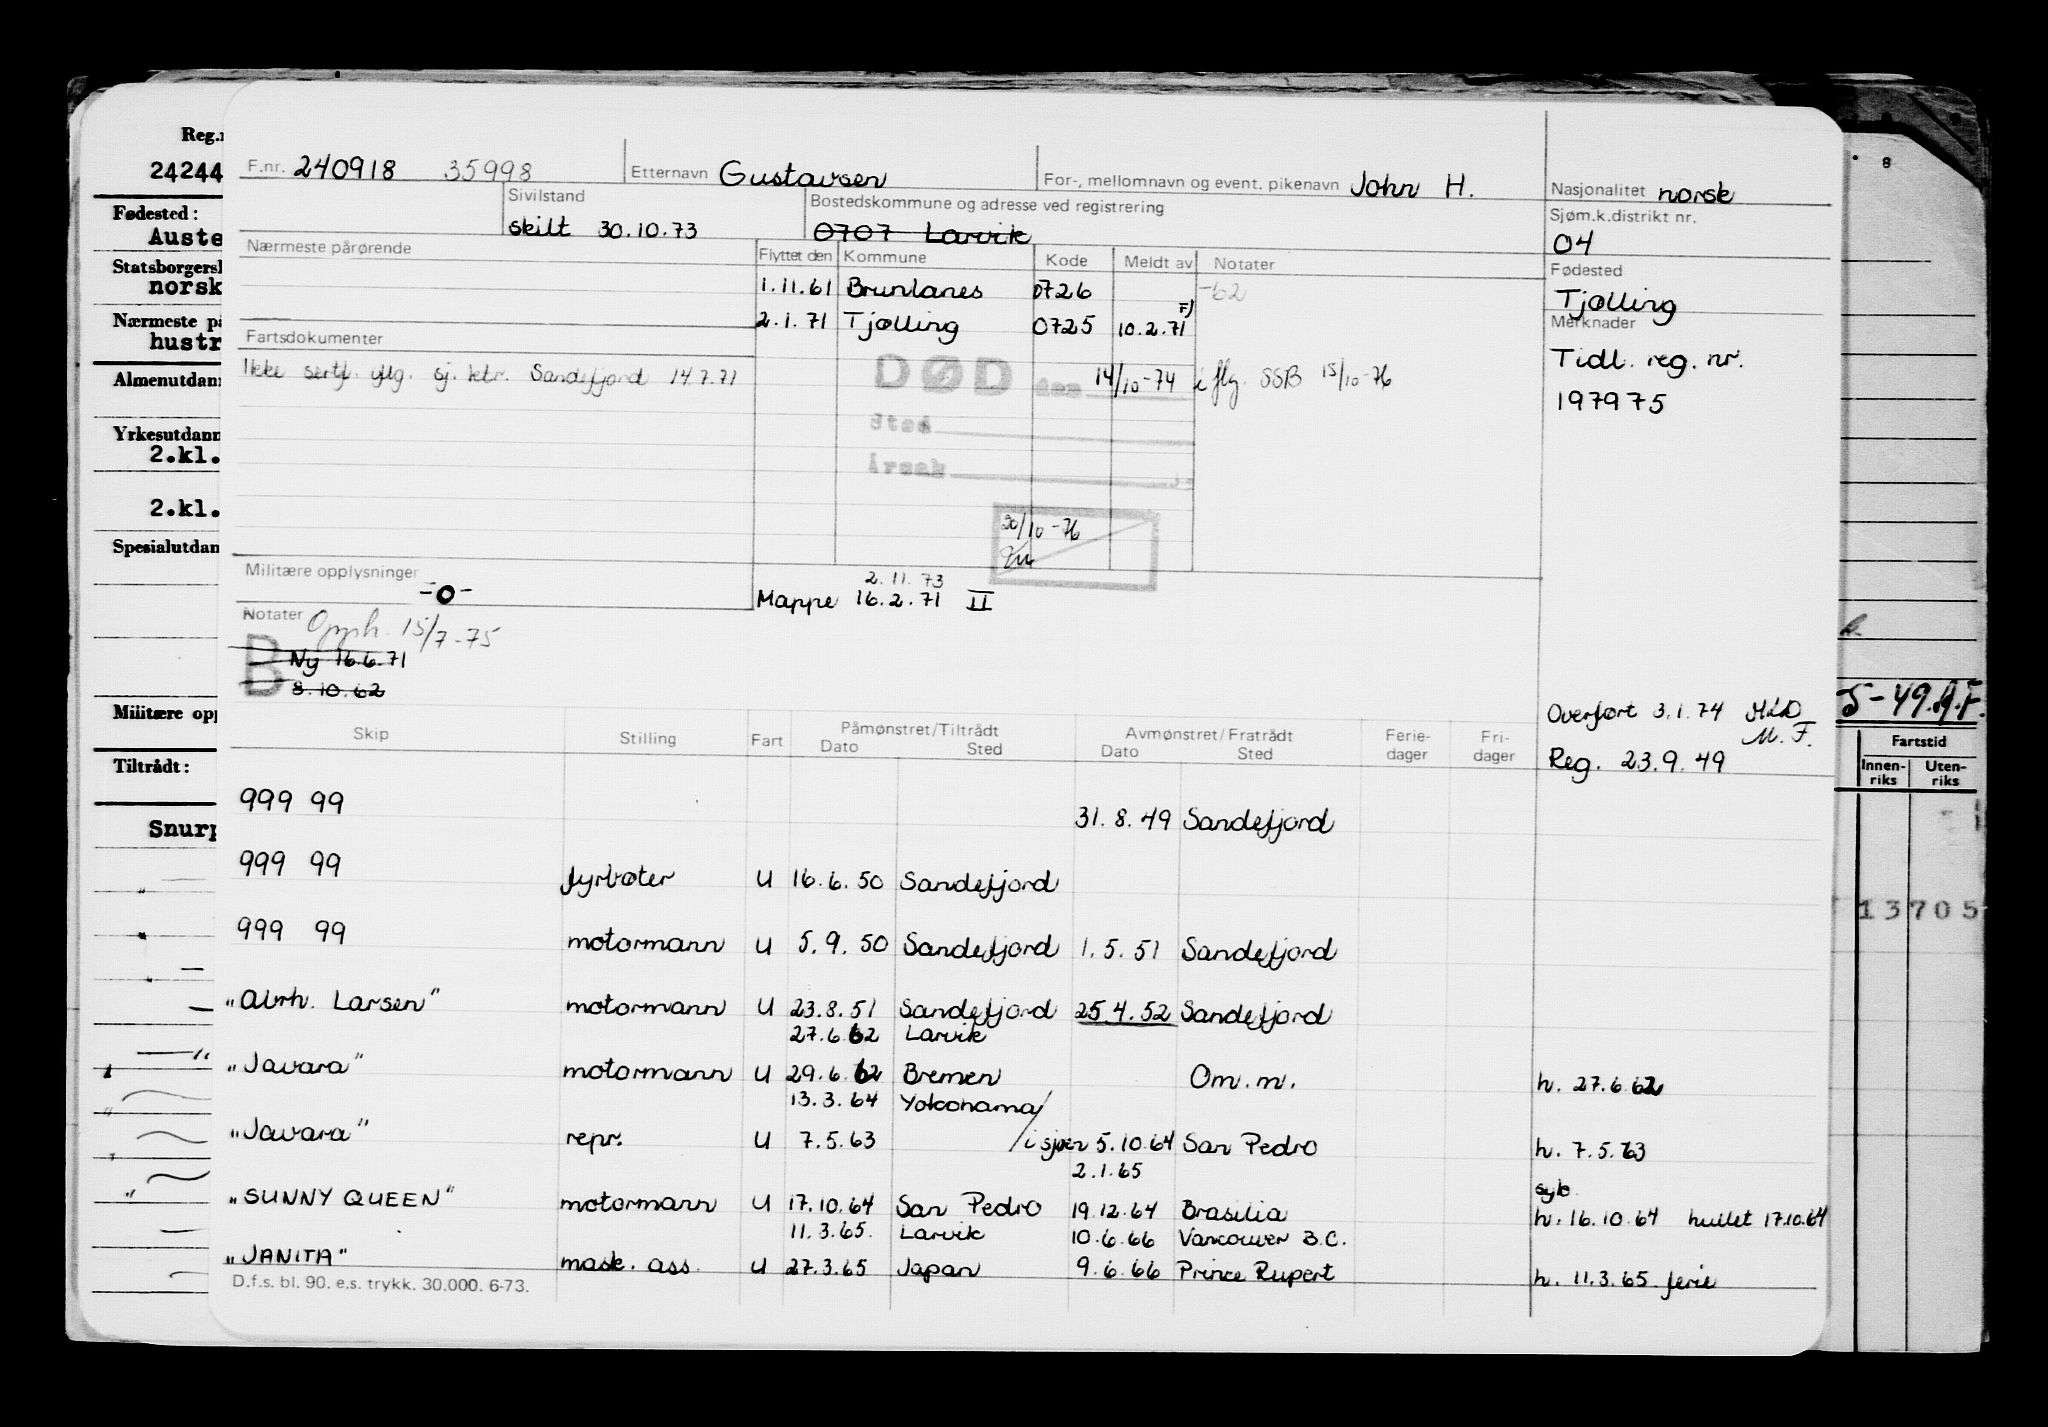 Reg.
24244
Fødested:
Auste
Statsborgersk
norsk
Nærmeste på
hustr
Almenutdann
Yrkesutdann
2.kl.
2.kl.
Spesialutdan
Militære opp
Tiltrådt:
Snurp
F.nr. 240918 35998
Etternavn Gustavsen
For-, mellomnavn og event. pikenavn John H.
Nasjonalitet norsk
Sivilstand
skilt 30.10.73
Bostedskommune og adresse ved registrering
0707 Larvik
Sjøm.k.distrikt nr.
04
Nærmeste pårørende
Flyttet den Kommune Kode Meldt av Notater
Fødested
Tjølling
1.11.61 Brunlanes 0726 -62
2.1.71 Tjølling 0725 10.2.71 F)
Merknader
Tidl. reg. nr.
197975
Fartsdokumenter
Ikke sertf. sj. ktr. Sandefjord 14.7.71
DØD den 14/10-74 i flg. SSB 15/10-76
Sted
Årsak
30/10-76
Militære opplysninger
-0-
2.11.73
Mappe 16.2.71 II
Notater
Opph. 15/7-75
B
Ny 16.6.71
8.10.62
Overført 3.1.74
M.F.
Reg. 23.9.49
5-49.A.F.
Skip Stilling Fart Påmønstret/Tiltrådt Avmønstret/Fratrådt Ferie-dager Fri-dager
Dato Sted Dato Sted
Fartstid
Innen-riks Uten-riks
999 99 31.8.49 Sandefjord
999 99 fyrbøter U 16.6.50 Sandefjord
13705
999 99 motormann U 5.9.50 Sandefjord 1.5.51 Sandefjord
"Abrh. Larsen" motormann U 23.8.51 Sandefjord 25.4.52 Sandefjord
27.6.62 Larvik
"Javara" motormann U 29.6.62 Bremen Om.m. h. 27.6.62
13.3.64 Yokohama/
"Javara" repr. U 7.5.63 /i sjøen 5.10.64 San Pedro h. 7.5.63
2.1.65
syk
"SUNNY QUEEN" motormann U 17.10.64 San Pedro 19.12.64 Brasilia h. 16.10.64 hullet 17.10.64
11.3.65. Larvik 10.6.66 Vancouver B.C.
"JANITA" mask. ass. U 27.3.65 Japan 9.6.66 Prince Rupert h. 11.3.65 ferie
D.f.s. bl. 90. e.s. trykk. 30.000. 6-73.
8